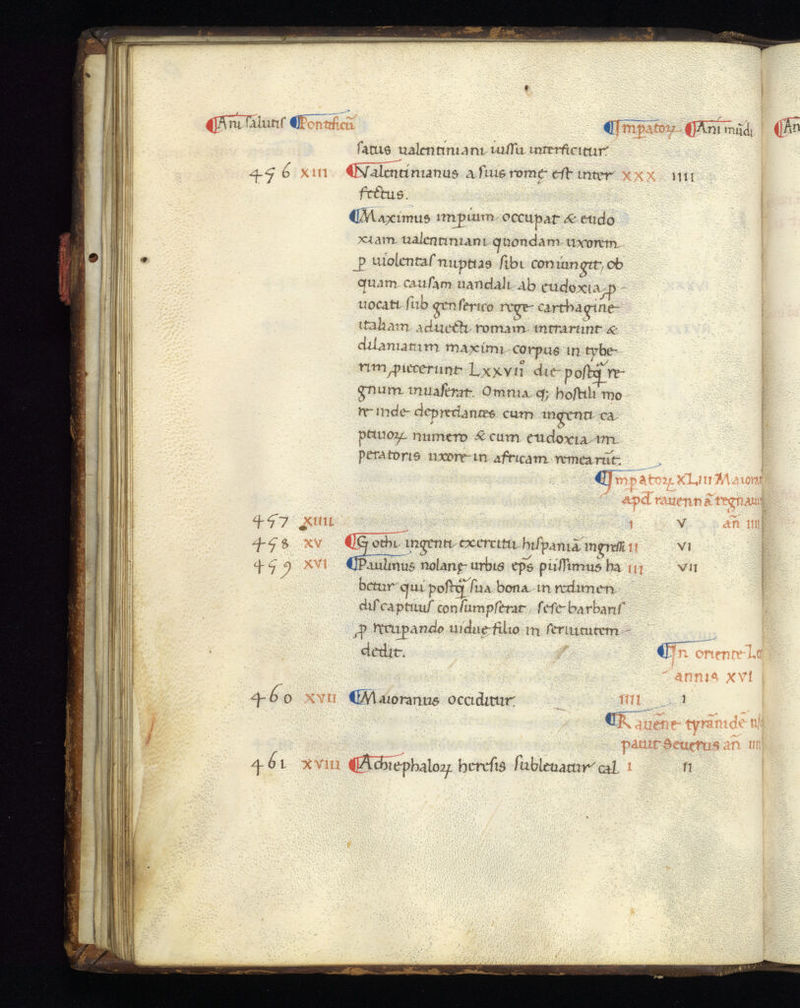 Ani salutis Pontificū Impatoꝝ Ani mūdi An
satus ualentiniani iussu interficitur
456 XIII Valentinianus a suis romę est inter XXX IIII
fectus.
Maximus impium occupat & eudo
xiam ualentiniani quondam uxorem
ꝑ uiolentas nuptias sibi coniungit, ob
quam causam uandali ab eudoxia ꝓ
uocati sub genserico rege carthagine
italiam aduecti romam intrarunt &
dilaniatum maximi corpus in tybe
rim ꝓiecerunt Lxxvii° die postq̃ re
gnum inuaserat. Omnia qꝫ hostili mo
re inde depredantes cum ingenti ca
ptiuoꝝ numero & cum eudoxia im
peratoris uxore in africam remearūt.
Impatoꝝ XLIII Maiora
apd rauennā regnauit
457 XIIII I V añ IIII
458 XV Gothi ingenti exercitu hispaniā ingressi II VI
459 XVI Paulinus nolanę urbis eps piissimus ha III VII
betur qui postq̃ sua bona in redimen
dis captiuis consumpserat sese barbaris
ꝓ recupando uiduę filio in seruitutem
dedit.
In oriente Le
annis XVI
460 XVII Maioranus occiditur IIII I
Rauēne tyrānidē us
pauit Seuerus añ IIII
461 XVIII Achephaloꝝ heresis subleuatur cal I II